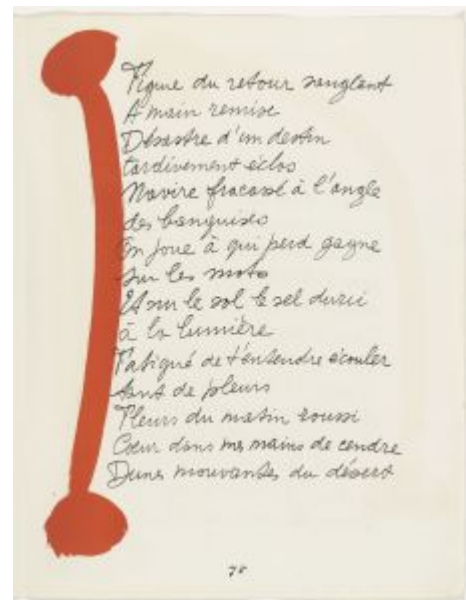 Figure du retour sanglant
A main remise
Désastre d'un destin
tardivement éclos
Navire fracassé à l'angle
des banquises
On joue à qui perd gagne
sur les mots
Et sur le sol le sel durci
à la lumière
Fatigué de t'entendre écouler
tant de pleurs
Pleurs du matin roussi
Cœur dans mes mains de cendre
Dunes mouvantes du désert